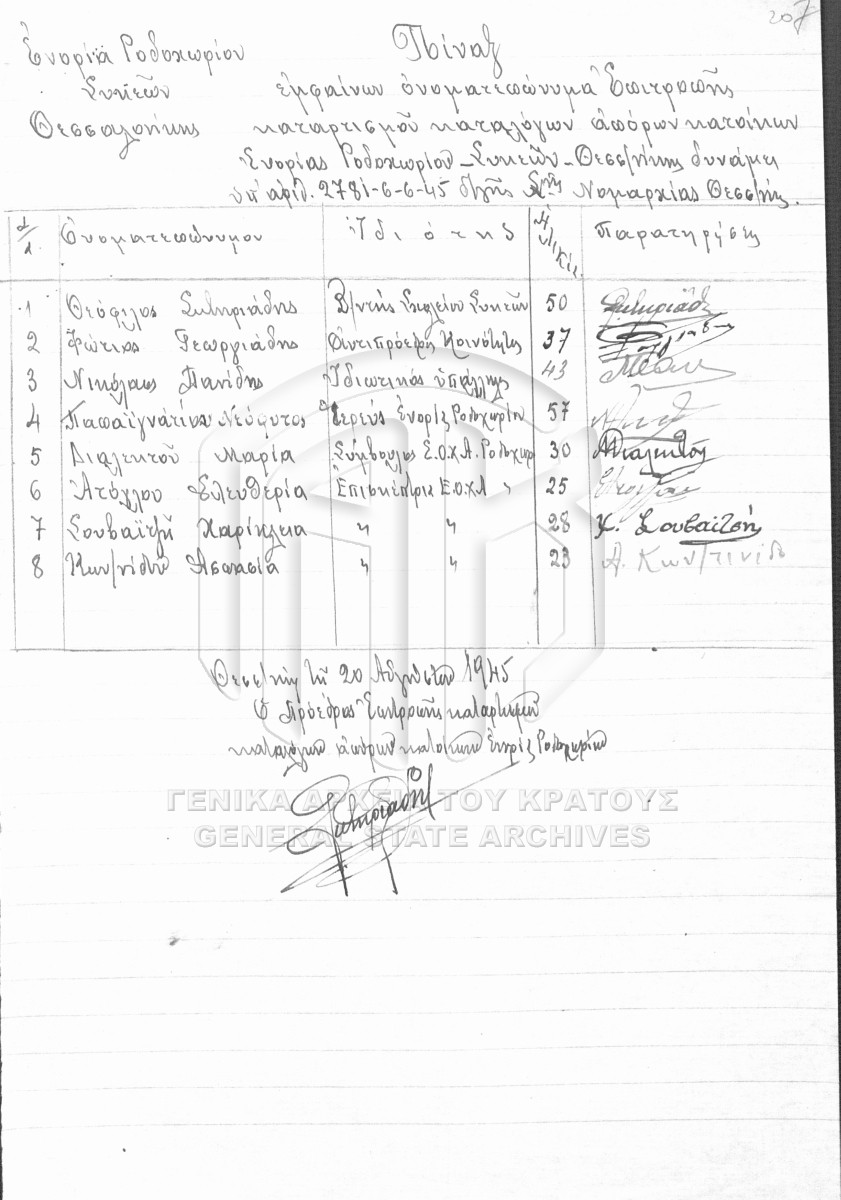 207
Ἐνορία Ροδοχωρίου
Συκεῶν
Θεσσαλονίκης
Πίναξ
ἐμφαίνων ὀνοματεπώνυμα Ἐπιτροπῆς
καταρτισμοῦ καταλόγων ἀπόρων κατοίκων
Ἐνορίας Ροδοχωρίου - Συκεῶν - Θεσσ/νίκης δυνάμει
ὑπ' ἀριθ. 2781-6-6-45 δ/γῆς Νομαρχίας Θεσσ/νίκης.
α/α Ὀνοματεπώνυμον Ἰδιότης Ἡλικία Παρατηρήσεις
1 Θεόφιλος Σωτηριάδης Δ/ντής Σχολείου Συκεῶν 50 Σωτηριάδης
2 Φώτιος Γεωργιάδης Ἀντιπρόεδρος Κοινότητος 37
3 Νικόλαος Πανίδης Ἰδιωτικός ὑπάλληλος 43
4 Παπαϊγνατίου Νεόφυτος Ἱερεύς Ἐνορίας Ροδοχωρίου 57
5 Διαλεκτοῦ Μαρία Σύμβουλος Ε.Ο.Χ.Α. Ροδοχωρ 30
6 Ἀτόγλου Ἐλευθερία Ἐπισκέπτρια Ε.Ο.Χ.Α " 25
7 Σουβαϊτζῆ Χαρίκλεια " " 28 Χ. Σουβαϊτζή
8 Κων/νίδου Ἀσπασία " " 23 Α. Κων/τινίδο
Θεσσ/νίκη τῇ 20 Αὐγούστου 1945
Ὁ Πρόεδρος Ἐπιτροπῆς καταρτισμοῦ
καταλόγων ἀπόρων κατοίκων Ἐνορίας Ροδοχωρίου
Σωτηριάδης
ΓΕΝΙΚΑ ΑΡΧΕΙΑ ΤΟΥ ΚΡΑΤΟΥΣ
GENERAL STATE ARCHIVES